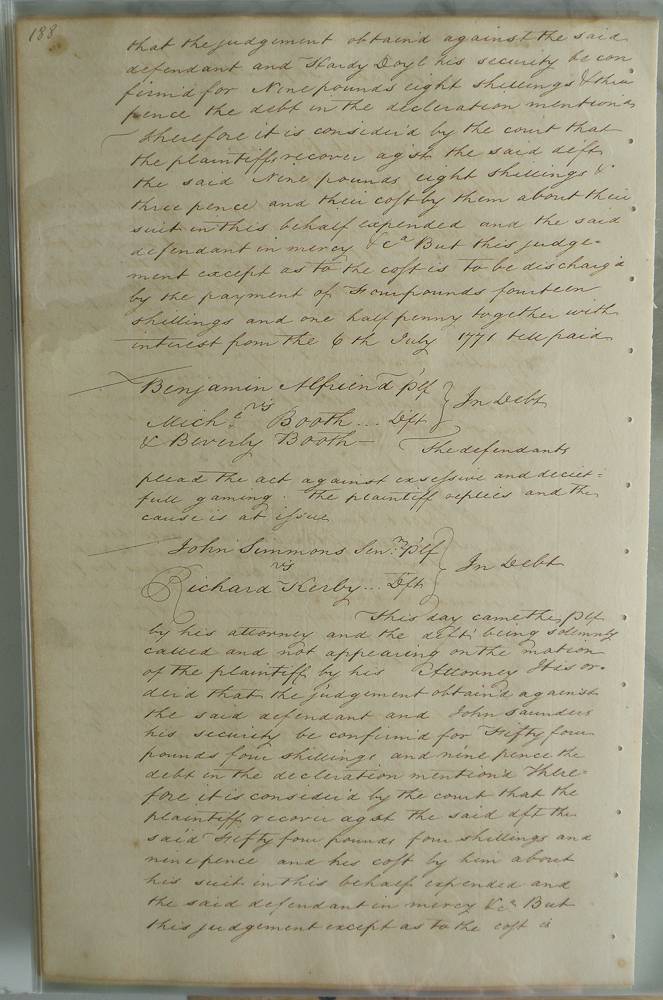 188
that the judgement obtain'd against the said
defendant and Hardy Doyl his security be con
firm'd for Nine pounds eight shillings & three
pence the debt in the decleration mention'd
Therefore it is consider'd by the court that
the plaintiffs recover agst the said deft
the said Nine pounds eight shillings &
three pence and their cost by them about their
suit in this behalf expended and the said
defendant in mercy &ca But this judge=
ment except as to the cost is to be discharg'd
by the payment of Four pounds fourteen
shillings and one half penny together with
interest from the 6th July 1771 till paid
Benjamin Alfriend plf
vs
In Debt
Michl Booth ... Dft
& Beverly Booth —
The defendants
plead the act against excessive and deciet=
full gaming. The plaintiff replies and the
cause is at issue
John Simmons Senr plf
vs
In Debt
Richard Kerby ... Dft
This day came the plf
by his attorney and the deft being solemnly
called and not appearing on the motion
of the plaintiff by his Attorney It is or=
der'd that the judgement obtain'd against
the said defendant and John Saunders
his security be confirm'd for Fifty four
pounds four shillings and nine pence the
debt in the decleration mention'd There=
fore it is consider'd by the court that the
plaintiff recover agst the said dft the
said Fifty four pounds four shillings and
nine pence and his cost by him about
his suit in this behalf expended and
the said defendant in mercy &ca But
this judgement except as to the cost is